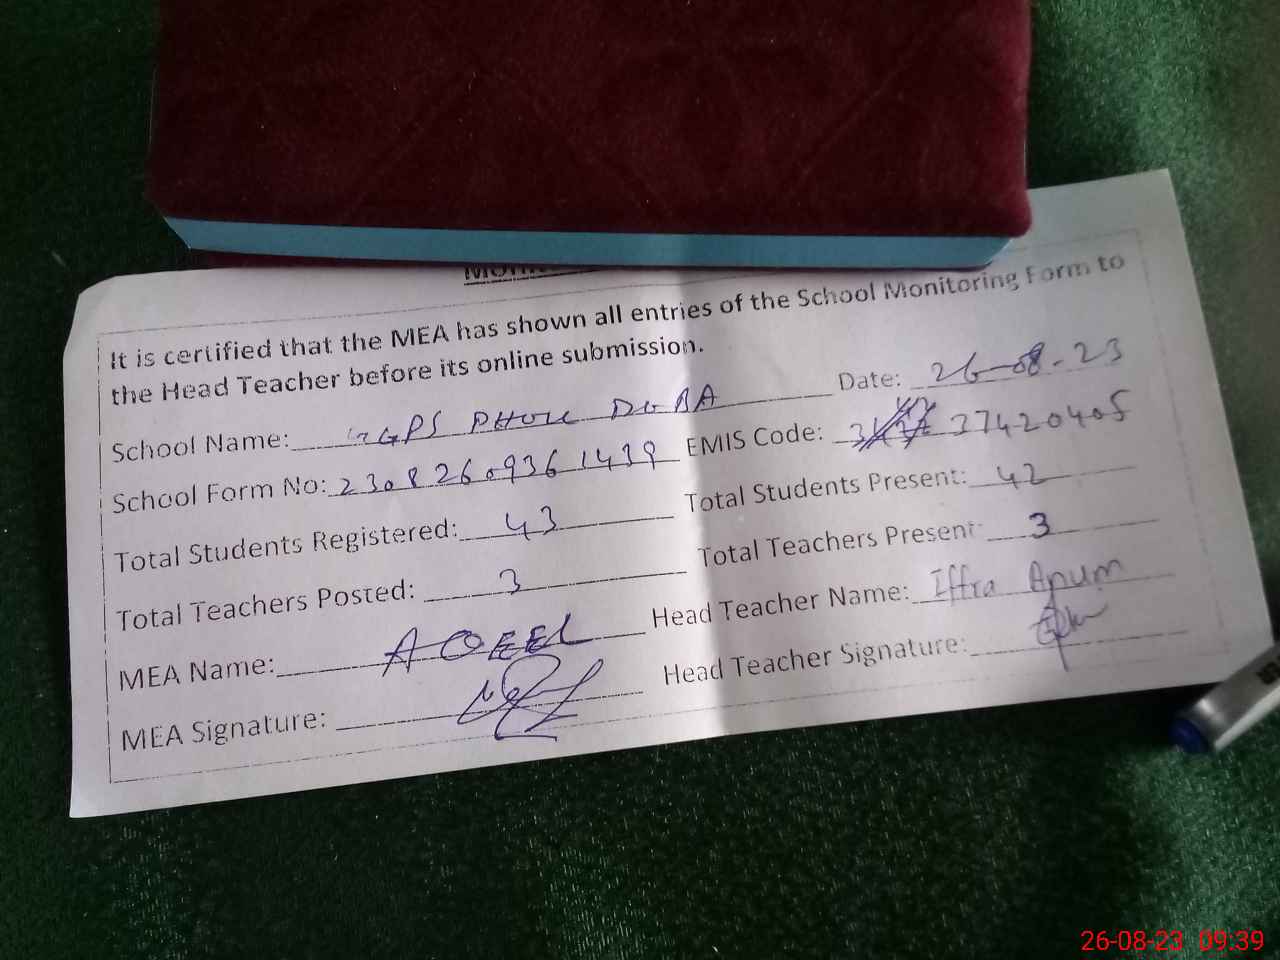 It is certified that the MEA has shown all entries of the School Monitoring Form to
the Head Teacher before its online submission.
School Name: GGPS DHOK Date: 26-08-23
School Form No: 23082609361439 EMIS Code: 37420405
Total Students Registered: 43 Total Students Present: 42
Total Teachers Posted: 3 Total Teachers Present: 3
MEA Name: AQEEL Head Teacher Name: Iffra Anum
MEA Signature: Head Teacher Signature:
26-08-23 09:39